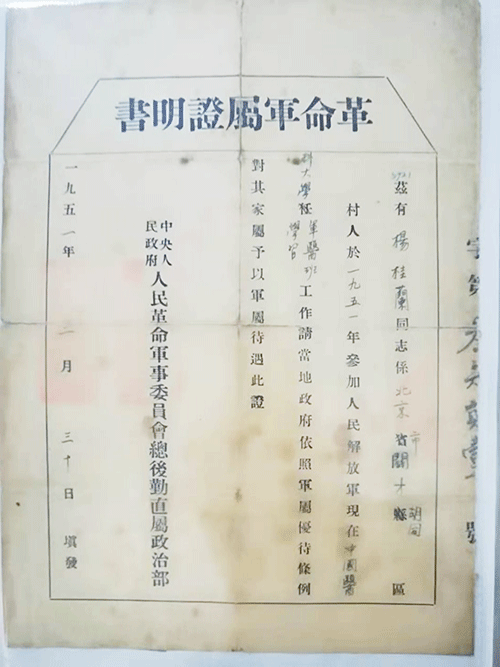 革命軍屬證明書
茲有楊桂蘭同志係北京市省關才胡同縣區
村人於一九五一年參加人民解放軍現在中國醫
科大學任軍醫班學習工作請當地政府依照軍屬優待條例
對其家屬予以軍屬待遇此證
中央人民政府人民革命軍事委員會總後勤直屬政治部
一九五一年 三月 三十日 填發
字第 號